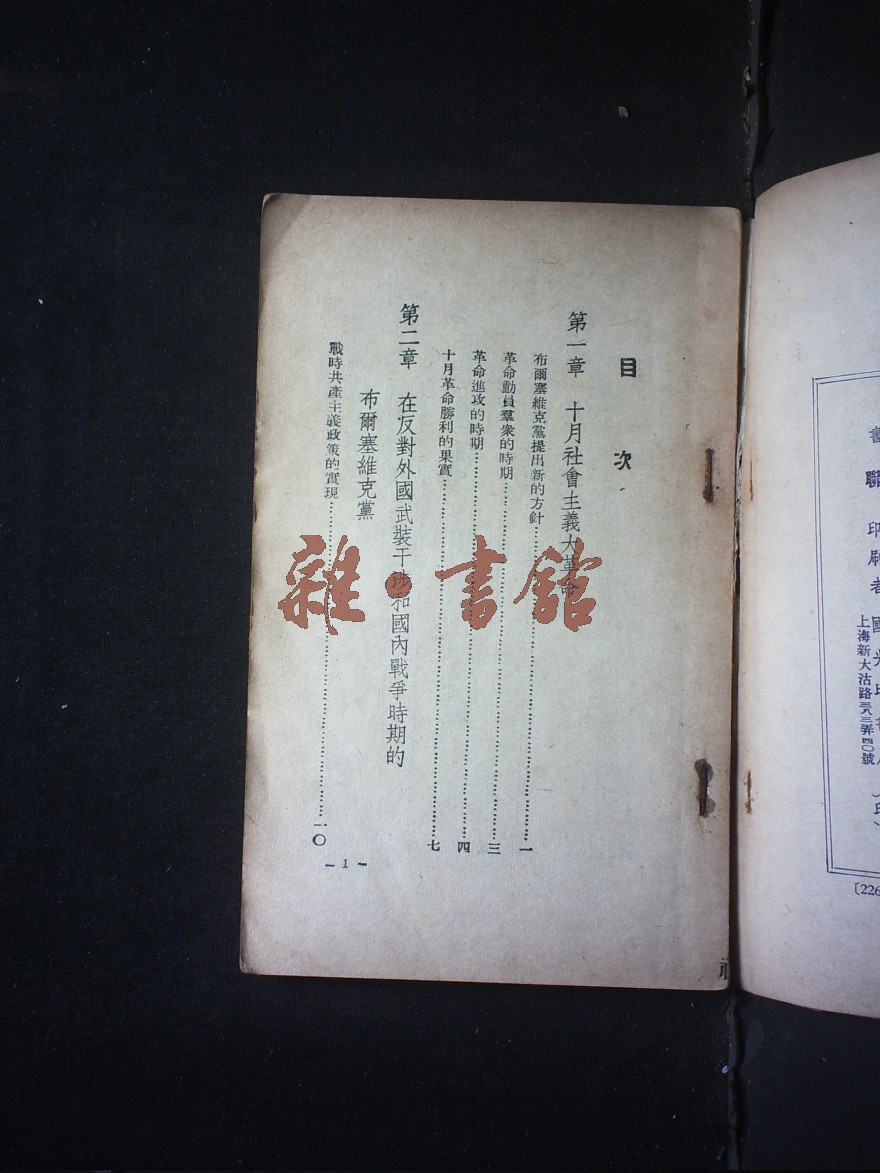 目次
第一章 十月社會主義大革命
布爾塞維克黨提出新的方針……一
革命動員羣衆的時期……三
革命進攻的時期……四
十月革命勝利的果實……七
第二章 在反對外國武裝干涉和國內戰爭時期的
布爾塞維克黨
戰時共產主義政策的實現……一〇
-1-
雜·書館
印刷者
上海新大沽路
號
〔226